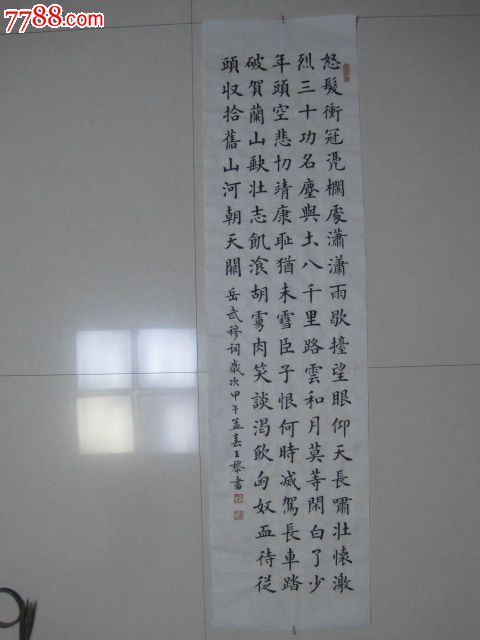 7788.com
怒髮衝冠凭欄處瀟瀟雨歇擡望眼仰天長嘯壯懷激
烈三十功名塵與土八千里路雲和月莫等閑白了少
年頭空悲切靖康恥猶未雪臣子恨何時滅駕長車踏
破賀蘭山缺壯志飢飡胡虜肉笑談渴飲匈奴血待從
頭收拾舊山河朝天闕 岳武穆詞歲次甲午孟春王黎書